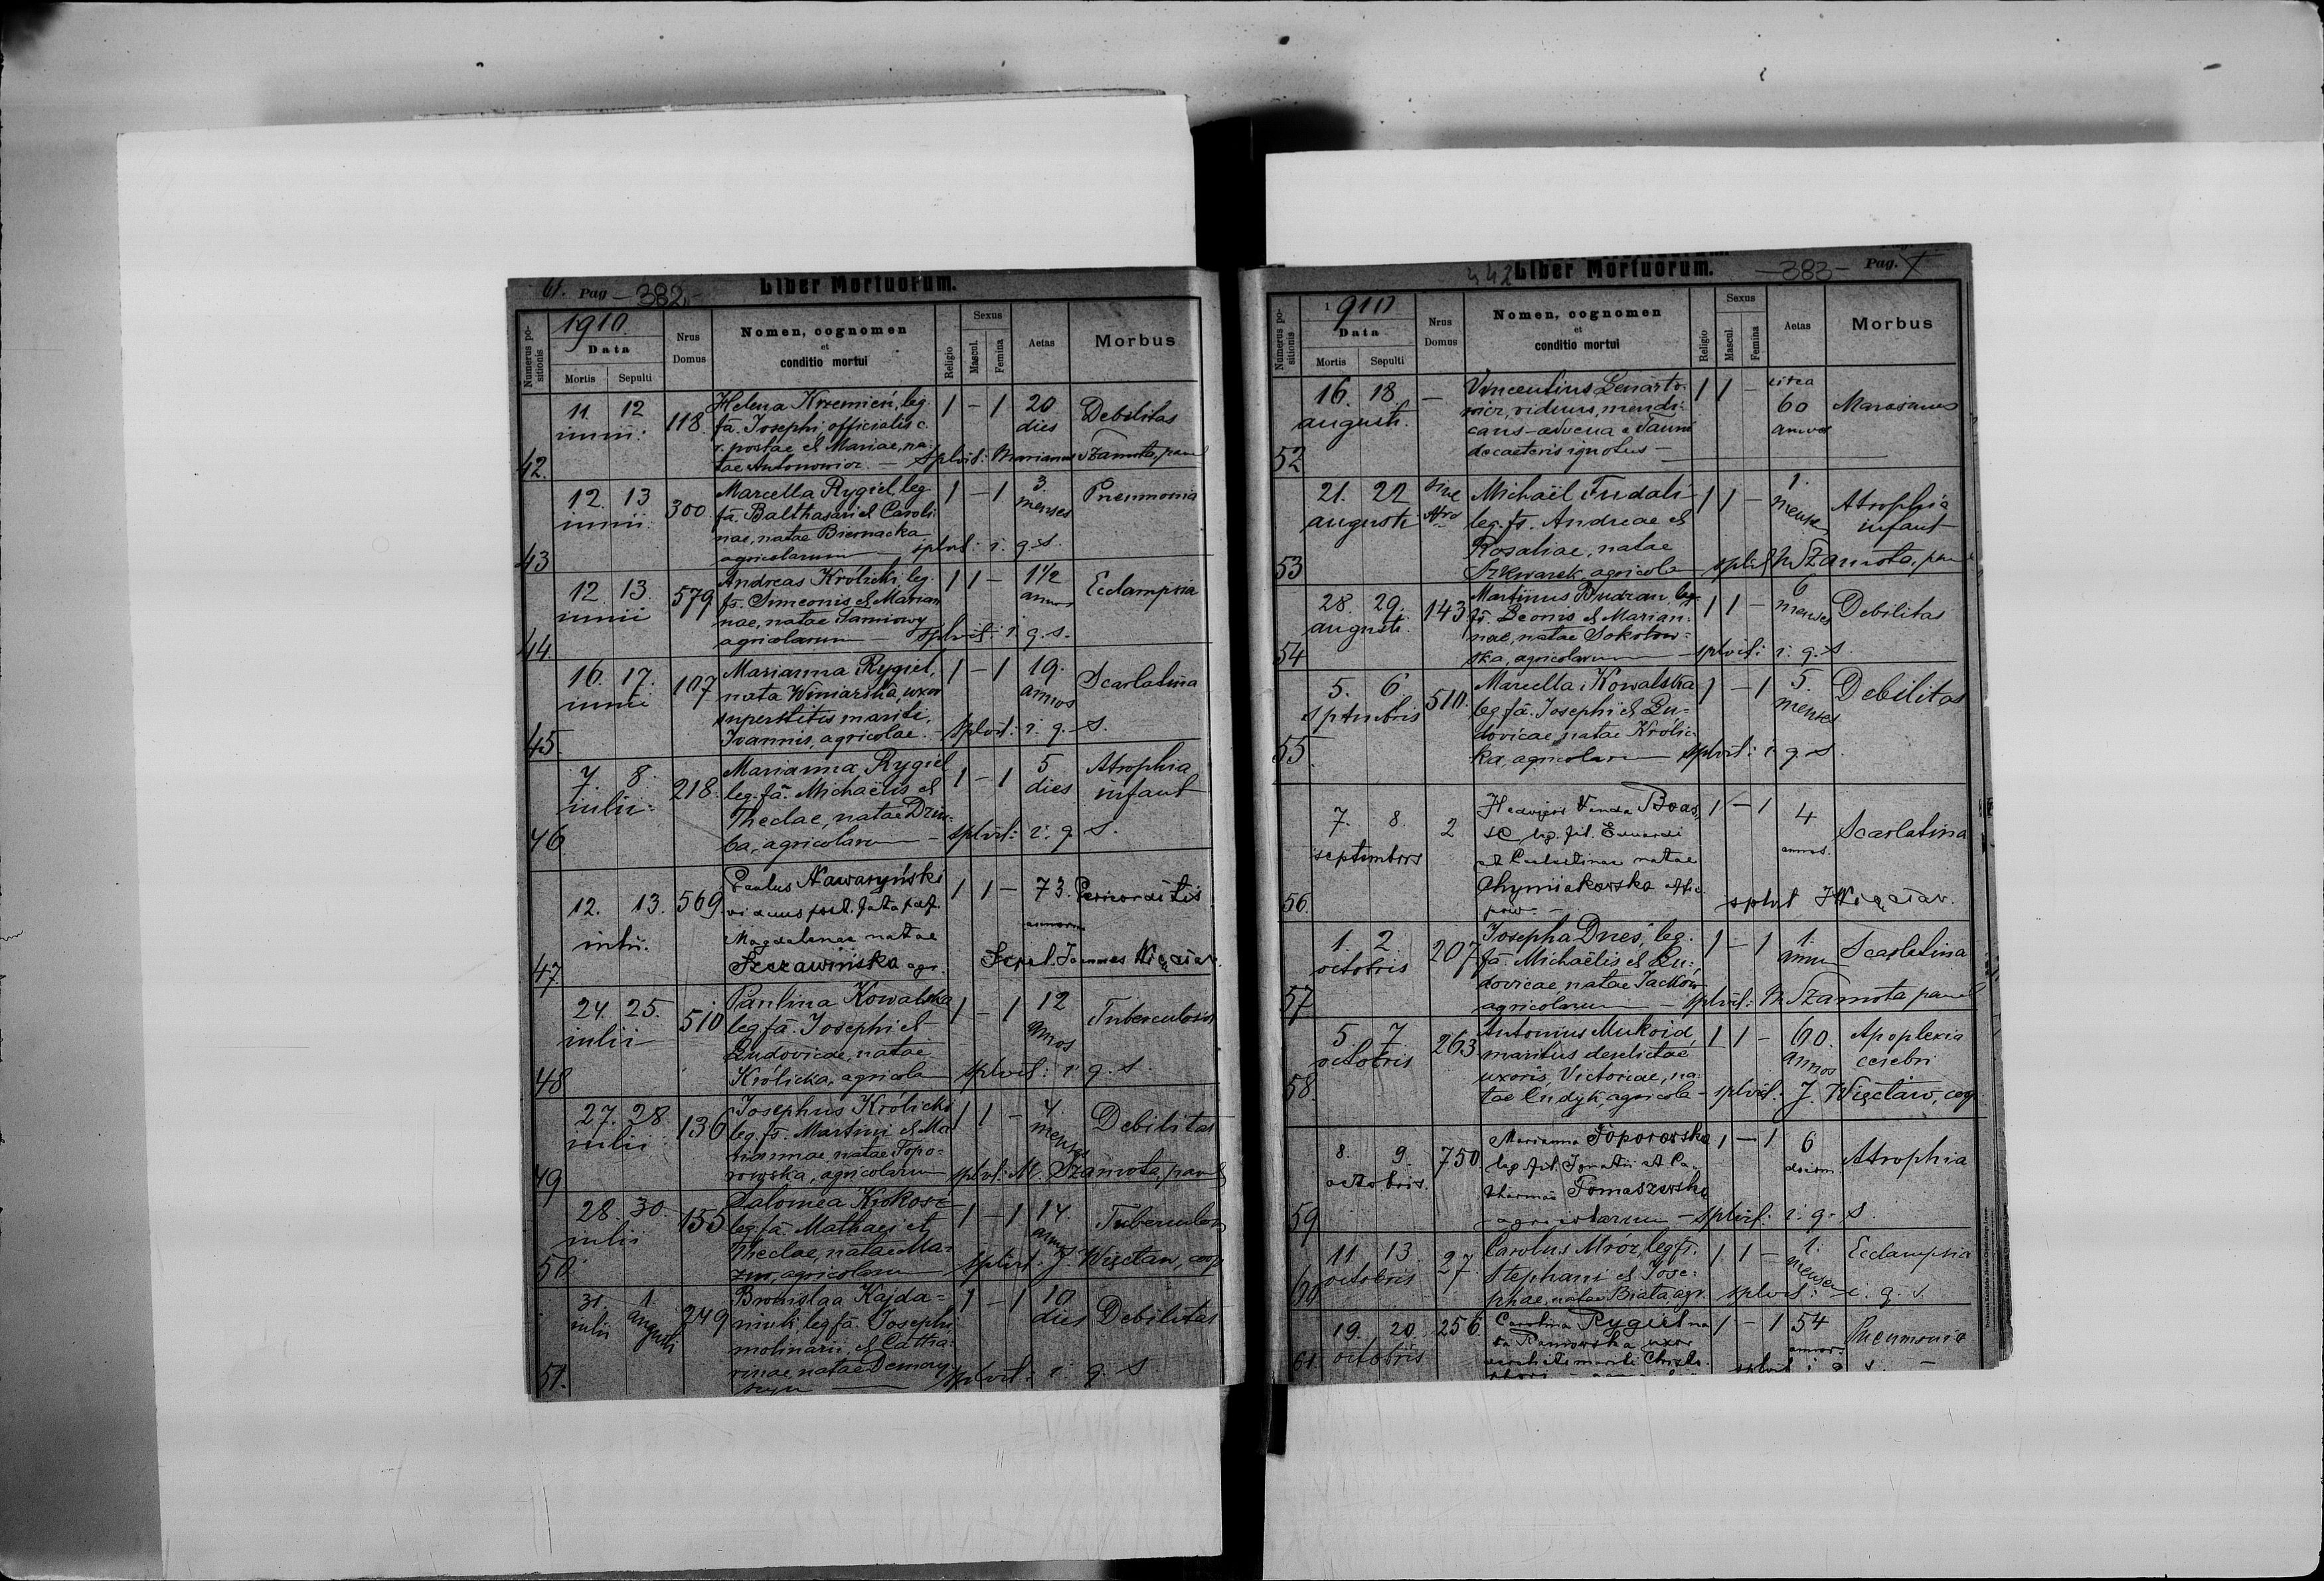 61. Pag - 382 -
Liber Mortuorum.
Numerus positionis
1910.
Data
Mortis Sepulti
Nrus Domus
Nomen, cognomen
et
conditio mortui
Religio
Sexus
Mascul. Femina
Aetas
Morbus
42. 11. 12 iunii. 118. Helena Krzemień, leg. 1 - 1 20 dies Debilitas
fa. Josephi, officialis c.
r. postae et Mariae, na-
tae Antonowicz. — Splvit: Marianus Szamota, par
43 12. 13 iunii. 300. Marcella Rygiel, leg. 1 - 1 3. menses Pneumonia
fa. Balthasari et Caroli-
nae, natae Biernacka
agricolarum — splvit: i. q. s.
44. 12. 13. iunii 579 Andreas Królicki, leg. 1 1 - 1½ annos Eclampsia
fs. Simeonis et Marian
nae, natae
agricolarum — splvit: i. q. s.
45. 16. 17. iunii 107 Marianna Rygiel, 1 - 1 19. annos Scarlatina
nata Winiarska, uxor
superstitis mariti,
Joannis, agricolae. — Splvit: i. q. s.
46 7. 8. iulii. 218. Marianna Rygiel 1 - 1 5 dies Atrophia infant
leg. fa. Michaëlis et
Theclae, natae Dziu-
ba, agricolarum — splvit: i. q. s.
47. 12. 13. iulii. 569 Paulus Nawaryński 1 1 - 73. annorum Pericarditis
viduus post. fata
Magdalenae natae
Szczawińska agr. Sepel. Joannes Więcław.
48 24. 25. iulii 510 Paulina Kowalska 1 - 1 12 annos Tuberculosis
leg fa. Josephi et
Ludovicae, natae
Królicka, agricola splvit: i. q. s.
49 27. 28. iulii 136 Josephus Królicki 1 1 - 4 menses Debilitas
leg. fs. Martini et Ma
riannae, natae Topo-
rowska, agricolarum splvit: M. Szamota, par
50 28. 30. iulii 155 Salomea Krokosz 1 - 1 14 annos Tuberculosis
leg fa. Mathaei et
Theclae, natae Ma-
zur, agricolarum splvit: J. Więcław, coop
51. 31. iulii 1 augusti 249 Bronislaa Kajda- 1 - 1 10 dies Debilitas
niuk, leg fa. Josephi
molinarii, et Catha-
rinae, natae
splvit: i. q. s.
442 Liber Mortuorum. - 383 - Pag.
Numerus positionis
1910
Data
Mortis Sepulti
Nrus Domus
Nomen, cognomen
et
conditio mortui
Religio
Sexus
Mascul. Femina
Aetas
Morbus
52 16. 18. augusti. — Vincentius Lenarto- 1 1 - circa 60 annos Marasmus
wicz, viduus, mendi-
cans-advena e
de caeteris ignotus —
53 21. 22 augusti sine Nro Michaël Fudali 1 1 - 1. mense Atrophia infant
leg. fs. Andreae et
Rosaliae, natae
Szkwarek, agricola splvit M Szamota, par
54 28. 29. augusti. 143 Martinus Budzan, leg. 1 1 - 6 menses Debilitas
fs. Leonis et Marian-
nae, natae Sokołow-
ska, agricolarum — splvit: i. q. s
55 5. 6. sptmbris 510. Marcella Kowalska 1 - 1 5. menses Debilitas
leg fa. Josephi et Lu-
dovicae, natae Królic-
ka, agricolarum splvit: i. q. s.
56. 7. 8. septembris 2 Hedvigis Vanda 1 - 1 4 annos. Scarlatina
leg. fil. Eduardi
et Celestinae natae
Chymiakowska
splvit J Więcław.
57 1. 2. octobris 207 Josepha Dneś, leg. 1 - 1 1. annu Scarlatina
fa. Michaëlis et Lu-
dovicae, natae Jacków
agricolarum — splvit: M Szamota par
58. 5. 7. octobris 263 Antonius Mukoid, 1 1 - 60. annos Apoplexia cerebri
maritus derelictae
uxoris, Victoriae, na
tae Cudyk, agricola - splvit: J. Więcław, coop
59 8. 9. octobris. 750. Marianna Toporowska 1 - 1 6 Atrophia
leg. fil. Ignatii et Ca-
tharinae Tomaszewska
agricolarum — splvit: i. q. s.
60 11. 13. octobris 27. Carolus Mróz, leg fs. 1 1 - 1. mense Eclampsia
Stephani et Jose-
phae, natae Biała, agr. splvit: - i. q. s
61. 19. 20. octobris 256. Carolina Rygiel na 1 - 1 54 annor. Pneumonia
ta uxor
mariti Christo-
splvit i q s. —